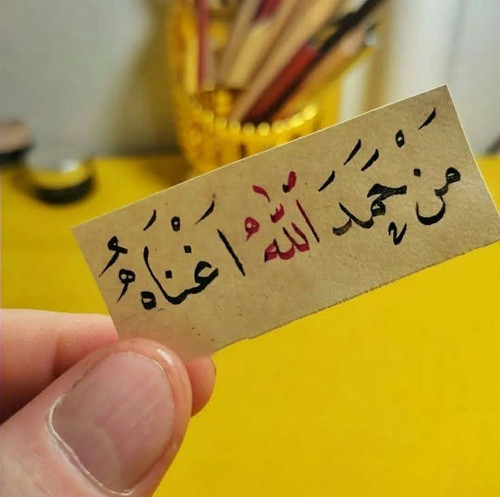 مَنْ حَمَدَ اللّٰهُ اَغْنَاهُ